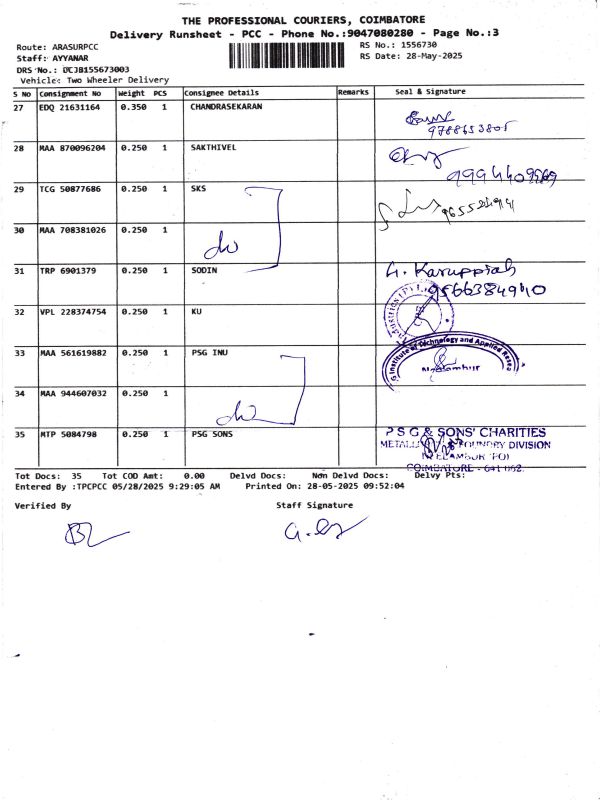 THE PROFESSIONAL COURIERS, COIMBATORE
Delivery Runsheet - PCC - Phone No.:9047080280 - Page No.:3
Route: ARASURPCC
RS No.: 1556730
Staff: AYYANAR
RS Date: 28-May-2025
DRS No.: DCJB155673003
Vehicle: Two Wheeler Delivery
S No Consignment No Weight PCS Consignee Details Remarks Seal & Signature
27 EDQ 21631164 0.350 1 CHANDRASEKARAN
9788653805
28 MAA 870096204 0.250 1 SAKTHIVEL
29 TCG 50877686 0.250 1 SKS
30 MAA 708381026 0.250 1
31 TRP 6901379 0.250 1 SODIN G. Karuppiah
9566384940
32 VPL 228374754 0.250 1 KU
33 MAA 561619882 0.250 1 PSG INU Institute of Technology and Applied Resea
Neelambur
34 MAA 944607032 0.250 1
35 MTP 5084798 0.250 1 PSG SONS P S G & SONS' CHARITIES
METALL FOUNDRY DIVISION
NEELAMBUR (PO)
COIMBATORE - 641 062.
Tot Docs: 35 Tot COD Amt: 0.00 Delvd Docs: Non Delvd Docs: Delvy Pts:
Entered By :TPCPCC 05/28/2025 9:29:05 AM Printed On: 28-05-2025 09:52:04
Verified By Staff Signature